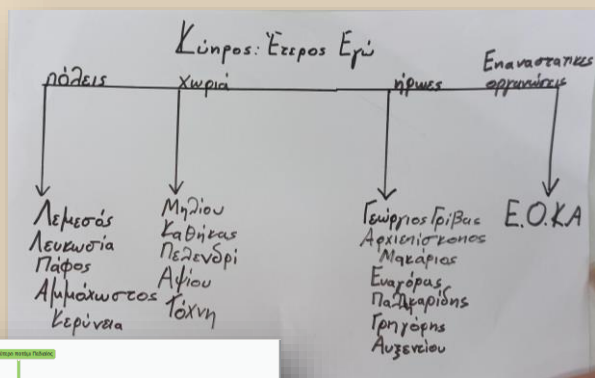 Κύπρος: Έτερος Εγώ
πόλεις
χωριά
ήρωες
Επαναστατικες
οργανώσεις
Λεμεσός
Λευκωσία
Πάφος
Αμμόχωστος
Κερύνεια
Μηλιου
Καθηκας
Πελενδρί
Αψίου
Τόχνη
Γεώργιος Γρίβας
Αρχιεπίσκοπος
Μακάριος
Ευαγόρας
Παλληκαρίδης
Γρηγόρης
Αυξεντίου
Ε.Ο.Κ.Α